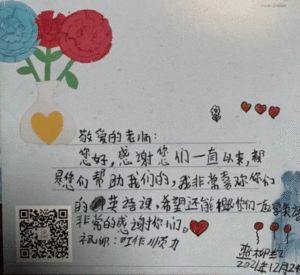 敬爱的老师:
您好,感谢您们一直以来,帮
是您们帮助我们的,我非常喜欢你们
的英语课,希望还能和你们一起
非常的感谢你们。
祝师:工作顺力
2021年12月28